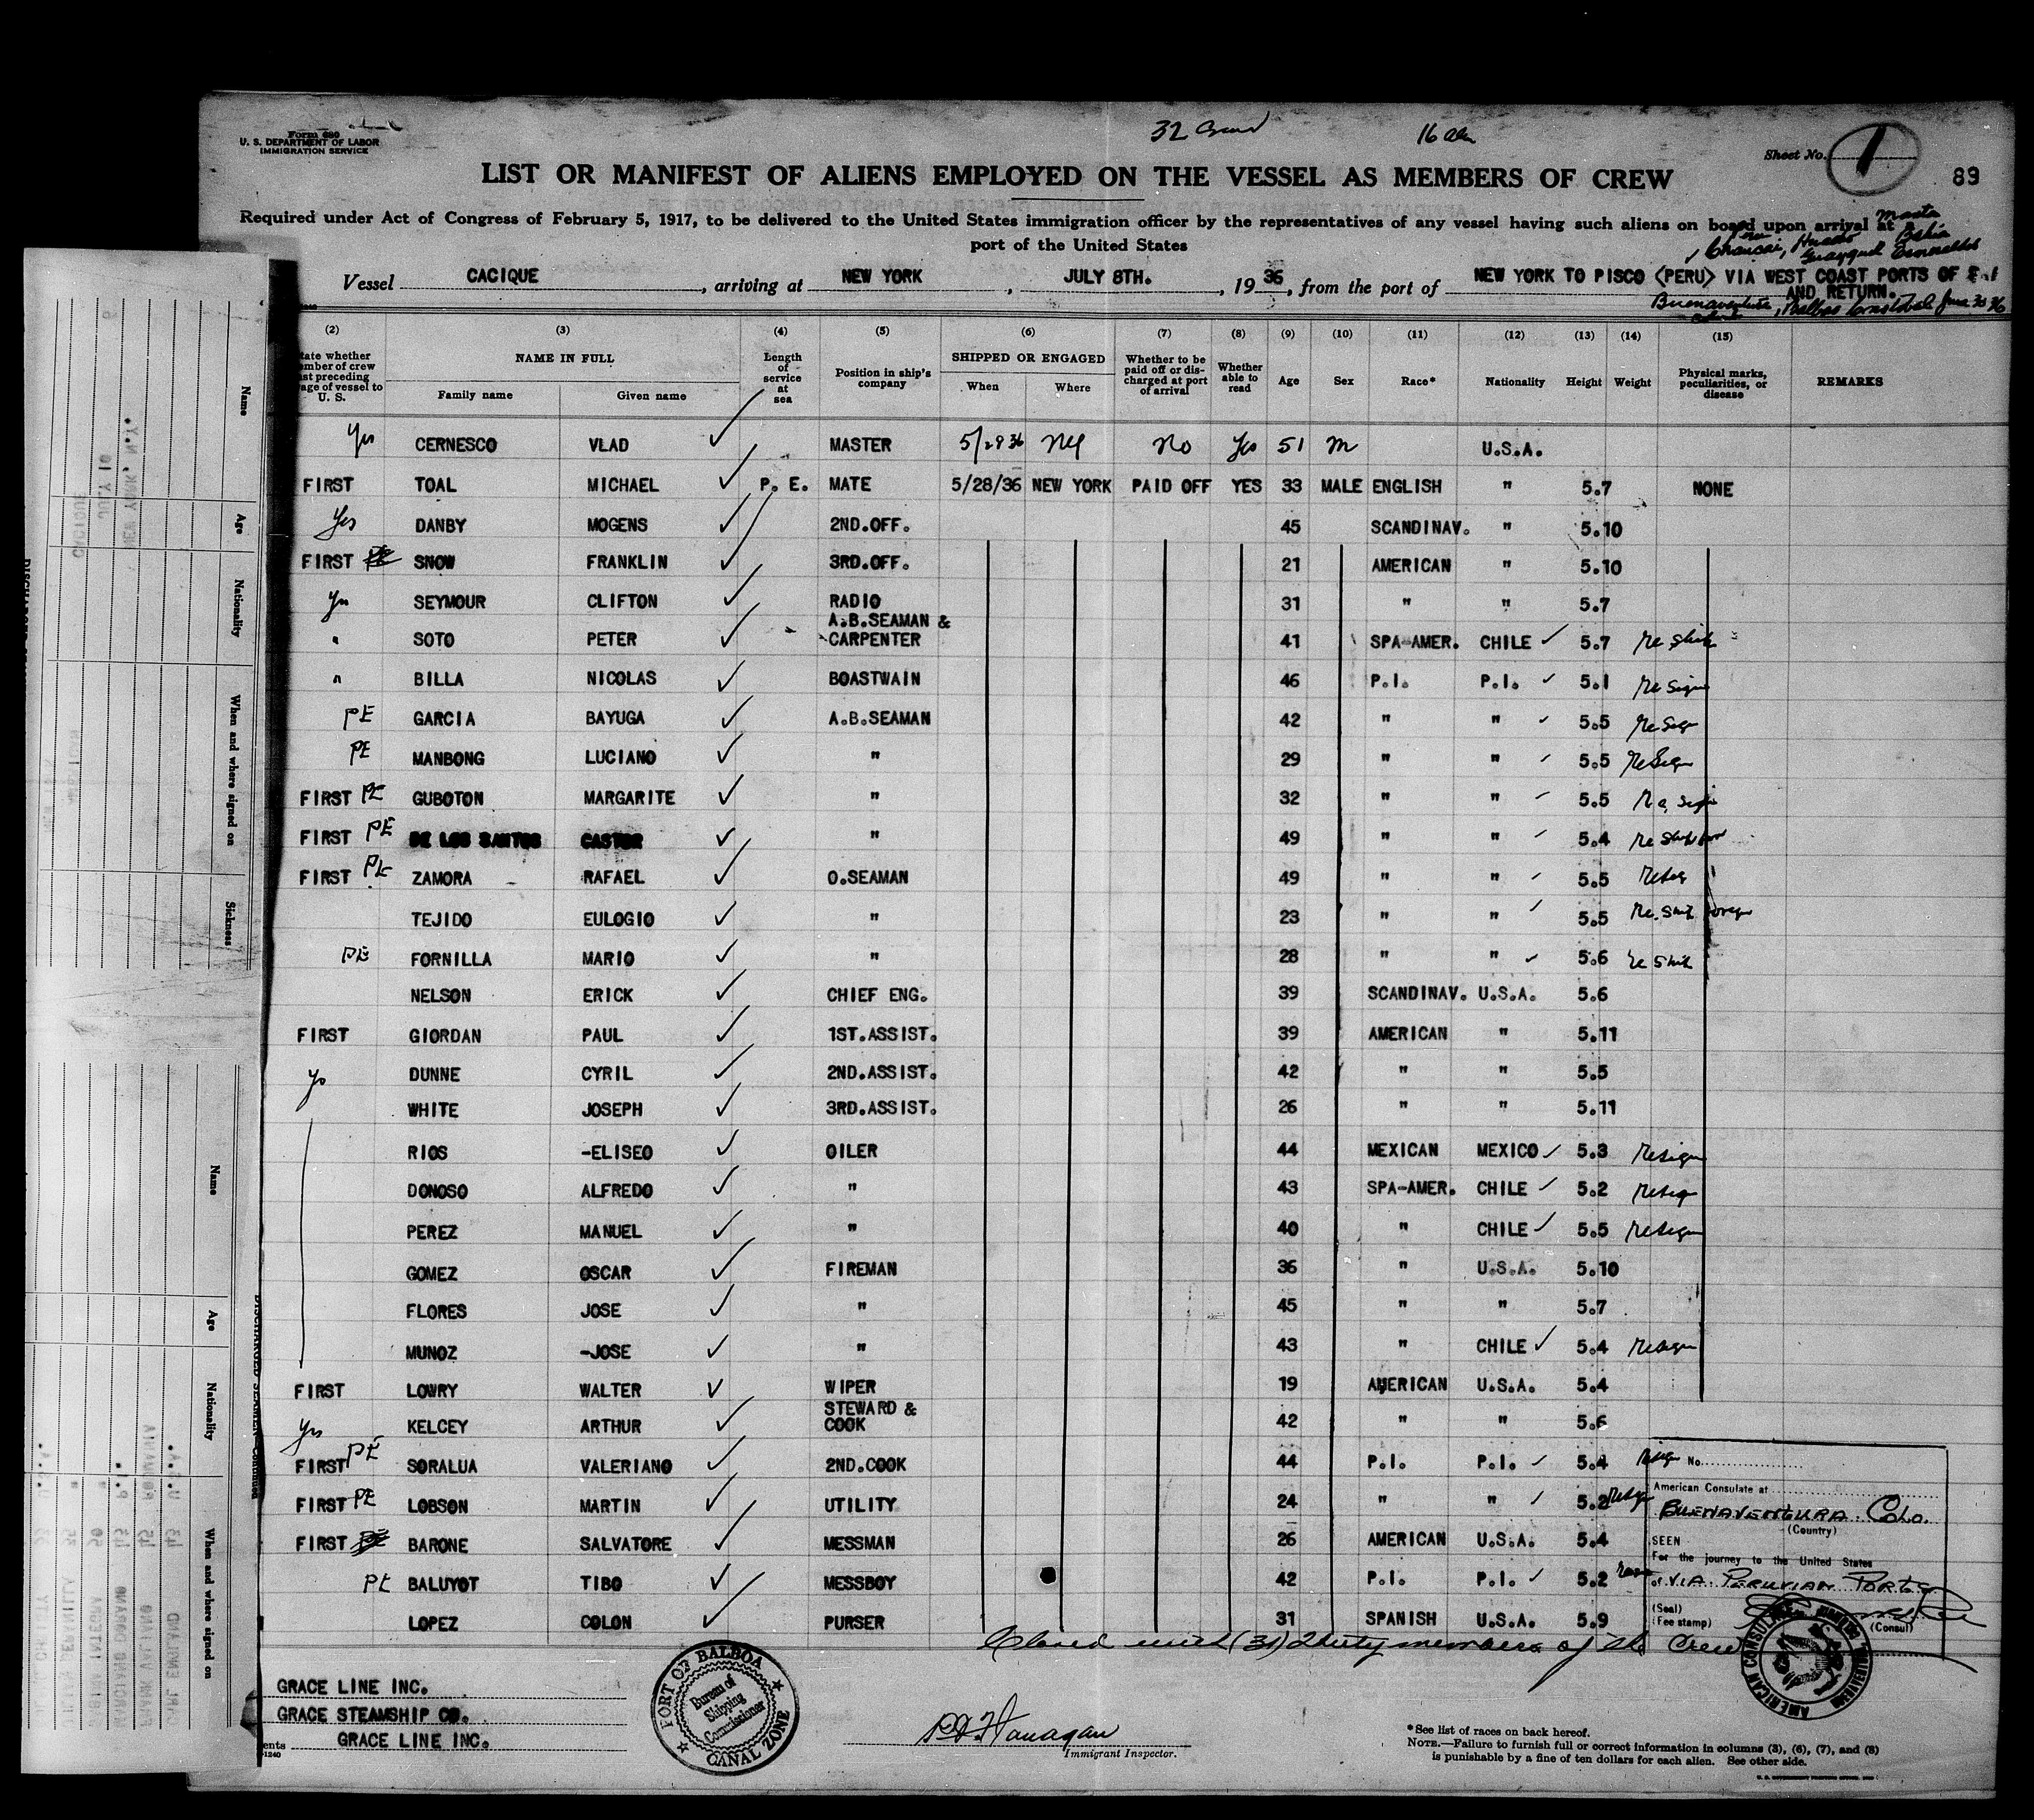 Form 680
U. S. DEPARTMENT OF LABOR
IMMIGRATION SERVICE
32 Crew
16 Aln
Sheet No. 1
89
LIST OR MANIFEST OF ALIENS EMPLOYED ON THE VESSEL AS MEMBERS OF CREW
Required under Act of Congress of February 5, 1917, to be delivered to the United States immigration officer by the representatives of any vessel having such aliens on board upon arrival at a
port of the United States
Manta
Peru Bahia
Chancai, Huacho Guayaquil Esmeraldas
Vessel CACIQUE, arriving at NEW YORK, JULY 8TH., 1936, from the port of NEW YORK TO PISCO (PERU) VIA WEST COAST PORTS OF
AND RETURN.
Buenaventura, Balboa Cristobal June 30 36
(2) (3) (4) (5) (6) (7) (8) (9) (10) (11) (12) (13) (14) (15)
NAME IN FULL
Family name Given name
Length of service at sea
Position in ship's company
SHIPPED OR ENGAGED
When Where
Whether to be paid off or discharged at port of arrival
Whether able to read
Age Sex Race* Nationality Height Weight
Physical marks, peculiarities, or disease
REMARKS
Yes CERNESCO VLAD MASTER 5/29 36 NY No Yes 51 M U.S.A.
FIRST TOAL MICHAEL P. E. MATE 5/28/36 NEW YORK PAID OFF YES 33 MALE ENGLISH " 5.7 NONE
Yes DANBY MOGENS 2ND.OFF. 45 SCANDINAV. " 5.10
FIRST SNOW FRANKLIN 3RD.OFF. 21 AMERICAN " 5.10
Yes SEYMOUR CLIFTON RADIO 31 " " 5.7
" SOTO PETER A.B.SEAMAN & CARPENTER 41 SPA-AMER. CHILE 5.7 Re Ship
" BILLA NICOLAS BOASTWAIN 46 P.I. P.I. 5.1 Re Sign
PE GARCIA BAYUGA A.B.SEAMAN 42 " " 5.5 Re Sign
PE MANBONG LUCIANO " 29 " " 5.5 Re Sign
FIRST PE GUBOTON MARGARITE " 32 " " 5.5 Re Sign
FIRST PE DE LOS SANTOS CASTOR " 49 " " 5.4 Re Ship
FIRST PE ZAMORA RAFAEL O.SEAMAN 49 " " 5.5 Re Sign
TEJIDO EULOGIO " 23 " " 5.5 Re Ship foreign
PE FORNILLA MARIO " 28 " " 5.6 Re Ship
NELSON ERICK CHIEF ENG. 39 SCANDINAV. U.S.A. 5.6
FIRST GIORDAN PAUL 1ST.ASSIST. 39 AMERICAN " 5.11
Yes DUNNE CYRIL 2ND.ASSIST. 42 " " 5.5
WHITE JOSEPH 3RD.ASSIST. 26 " " 5.11
RIOS -ELISEO OILER 44 MEXICAN MEXICO 5.3 Resign
DONOSO ALFREDO " 43 SPA-AMER. CHILE 5.2 Resign
PEREZ MANUEL " 40 " CHILE 5.5 Resign
GOMEZ OSCAR FIREMAN 36 " U.S.A. 5.10
FLORES JOSE " 45 " " 5.7
MUNOZ -JOSE " 43 " CHILE 5.4 Resign
FIRST LOWRY WALTER WIPER 19 AMERICAN U.S.A. 5.4
Yes KELCEY ARTHUR STEWARD & COOK 42 " " 5.6
FIRST PE SORALUA VALERIANO 2ND.COOK 44 P.I. P.I. 5.4 Resign
FIRST PE LOBSON MARTIN UTILITY 24 " " 5.2 Resign
FIRST BARONE SALVATORE MESSMAN 26 AMERICAN U.S.A. 5.4
PE BALUYOT TIBO MESSBOY 42 P.I. P.I. 5.2
LOPEZ COLON PURSER 31 SPANISH U.S.A. 5.9
No.
American Consulate at
BUENAVENTURA. Colo.
(Country)
SEEN
For the journey to the United States
VIA PERUVIAN PORTS
(Seal)
(Fee stamp)
(Consul)
AMERICAN CONSULATE
Closed with (31) thirty members of the Crew
GRACE LINE INC.
GRACE STEAMSHIP CO.
GRACE LINE INC.
PORT OF BALBOA
Bureau of Shipping Commissioner
CANAL ZONE
Immigrant Inspector.
*See list of races on back hereof.
NOTE.—Failure to furnish full or correct information in columns (3), (6), (7), and (8)
is punishable by a fine of ten dollars for each alien. See other side.
Name
Age
Nationality
When and where signed on
Sickness
Name
Age
Nationality
When and where signed on